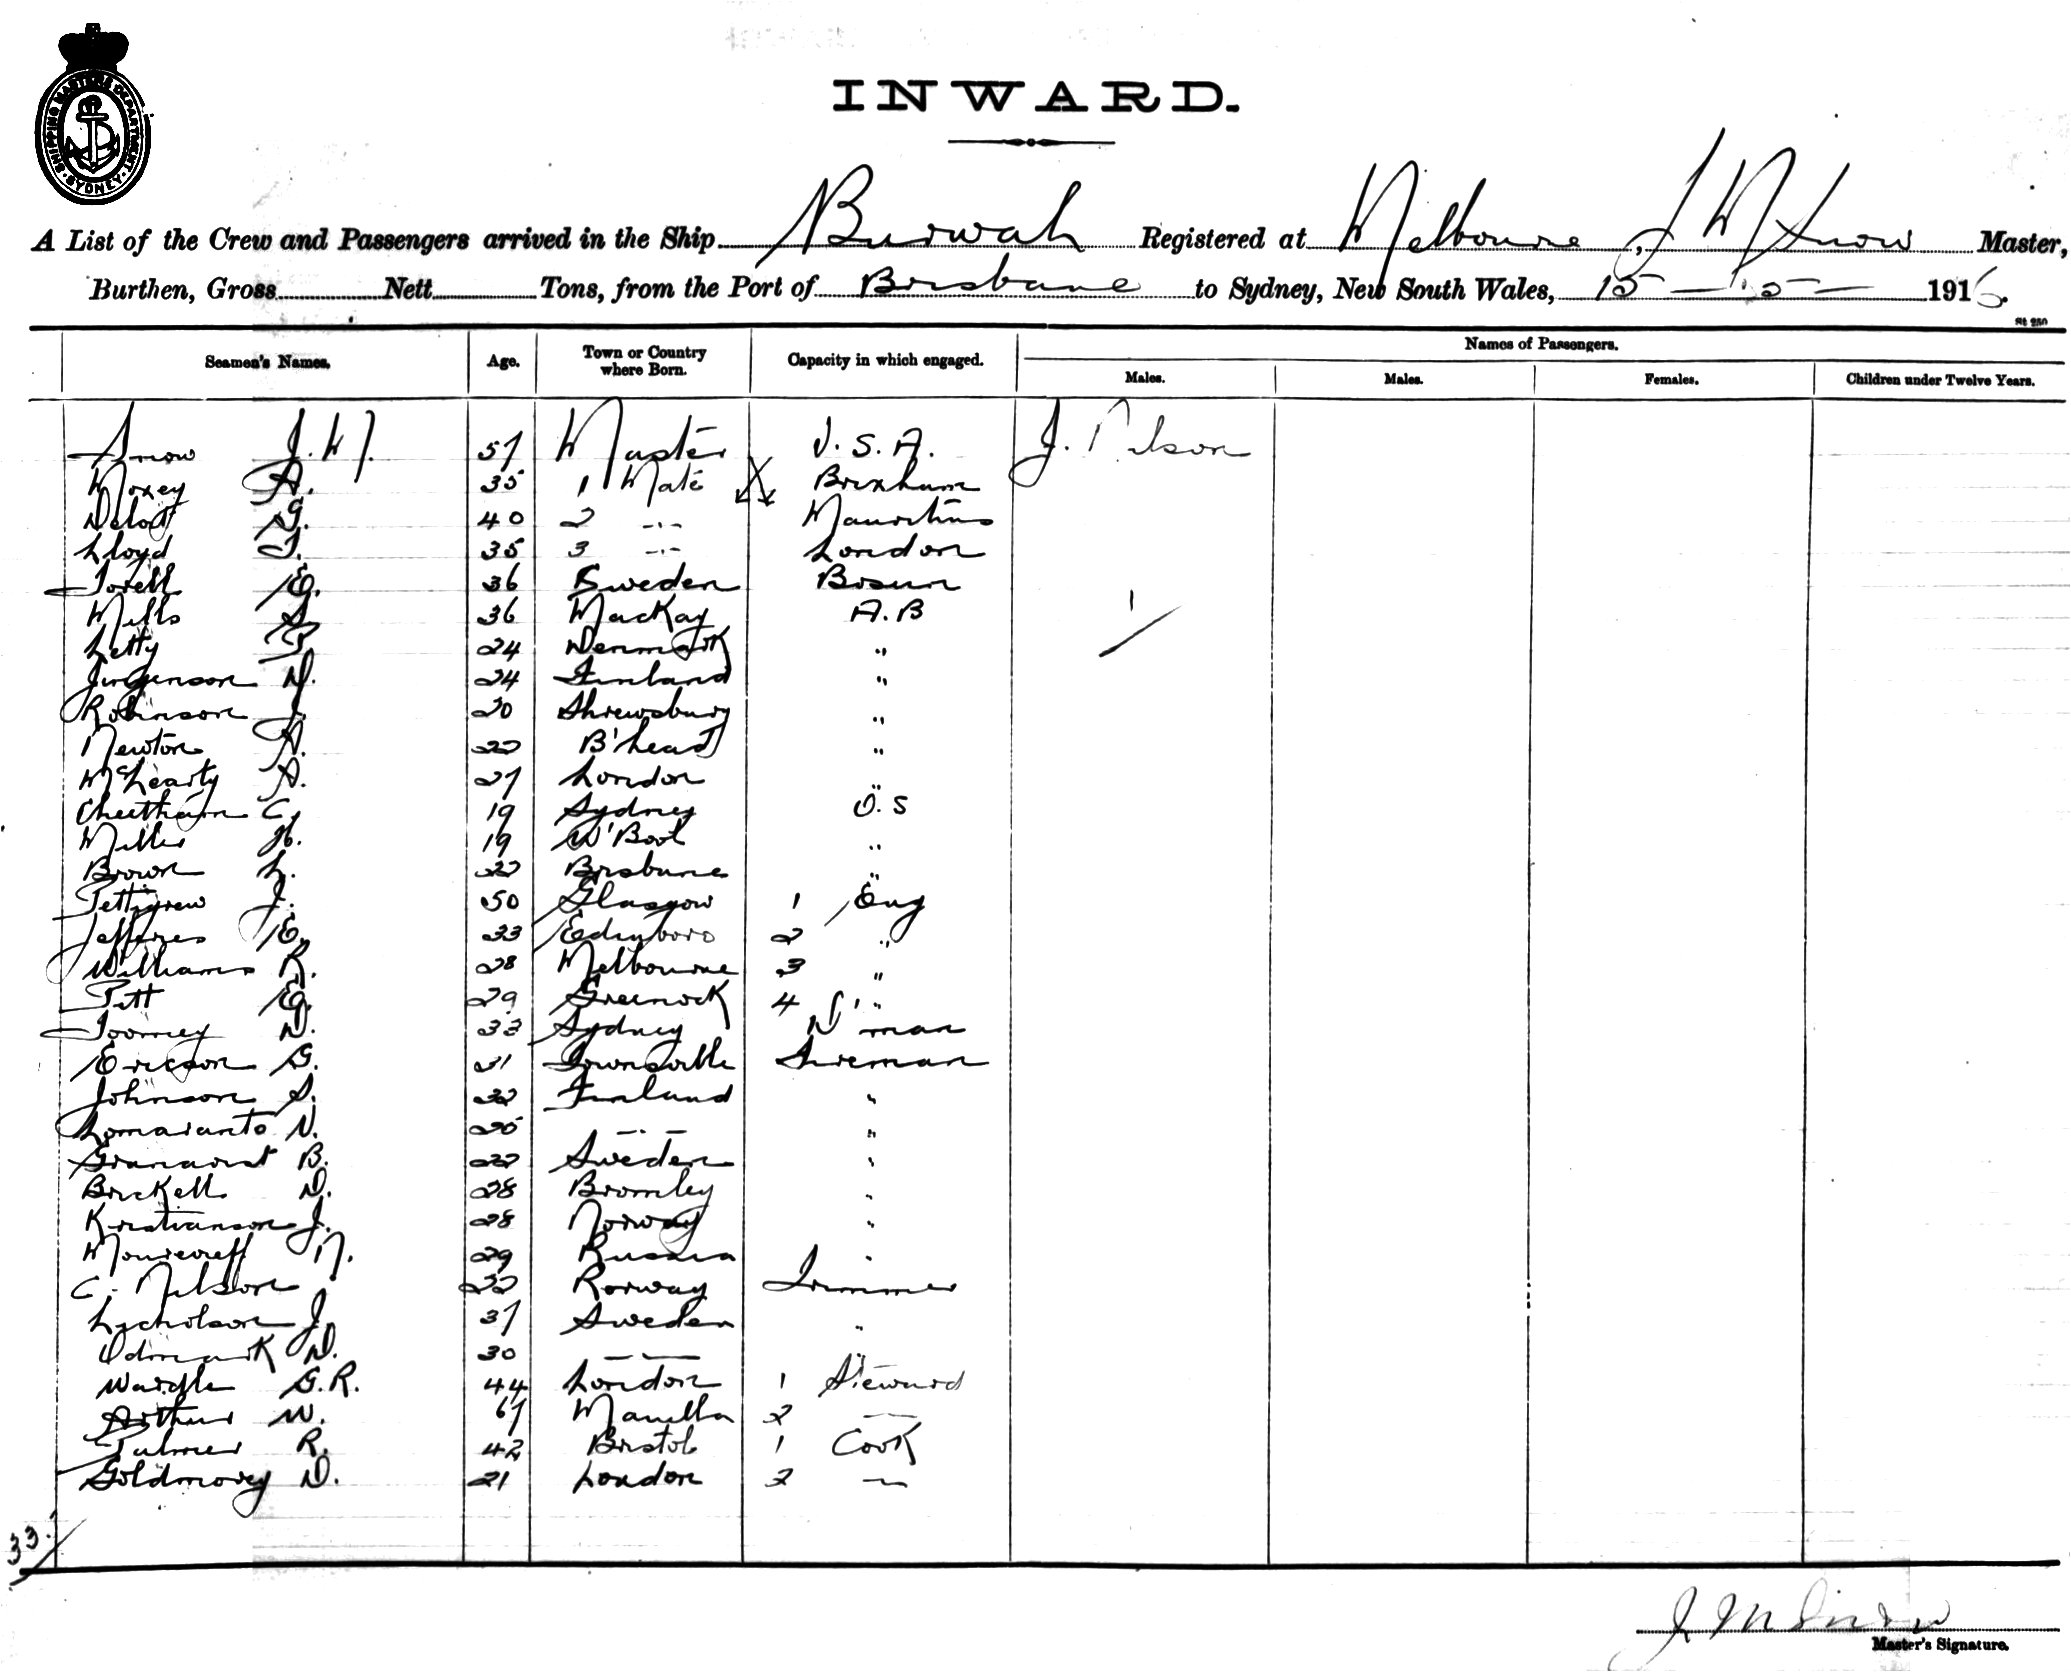 SHIPPING MASTERS DEPARTMENT · SYDNEY ·
INWARD.
A List of the Crew and Passengers arrived in the Ship Burwah Registered at Melbourne, J W Snow Master,
Burthen, Gross Nett Tons, from the Port of Brisbane to Sydney, New South Wales, 15 - 5 - 1916.
St 250
Seamen's Names. Age. Town or Country where Born. Capacity in which engaged. Names of Passengers.
Males. Males. Females. Children under Twelve Years.
Snow J. W. 57 Master U.S.A. J. Nelson
Moxey A. 35 1 Mate Brixham
G. 40 2 -"- Mauritius
Lloyd T. 35 3 -"- London
Torell E. 36 Sweden Bosun
Mills S. 36 MacKay A.B 1
Letty P. 24 Denmark "
Jurgenson D. 24 Finland "
Robinson J. 20 Shrewsbury "
Newton A. 22 B'head "
McLearty A. 27 London "
Cheetham C. 19 Sydney O.S
Miller H. 19 W'Bool "
Brown L. 22 Brisbane "
Pettigrew J. 50 Glasgow 1 Eng
Jefferies E. 33 Edinboro 2 "
Williams R. 28 Melbourne 3 "
Pitt E. 29 Greenock 4 "
Toomey D. 33 Sydney D'man
Ericson G. 31 Townsville Fireman
Johnson S. 32 Finland "
Lomaranto N. 25 -"- "
B. 22 Sweden "
Brickell D. 28 Bromley "
Kristianson J. 28 Norway "
M. 29 Russia "
C. Nilson 22 Norway Trimmer
Licholson J. 37 Sweden "
Odmark D. 30 — — "
Wardle G.R. 44 London 1 Steward
Arthur W. 67 Manilla 2 —
Palmer R. 42 Bristol 1 Cook
Goldmorey D. 21 London 2 —
33.
J W Snow
Master's Signature.